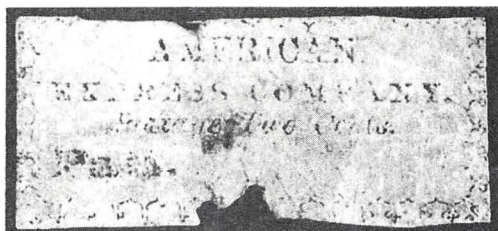 AMERICAN
EXPRESS COMPANY.
Postage two Cents.